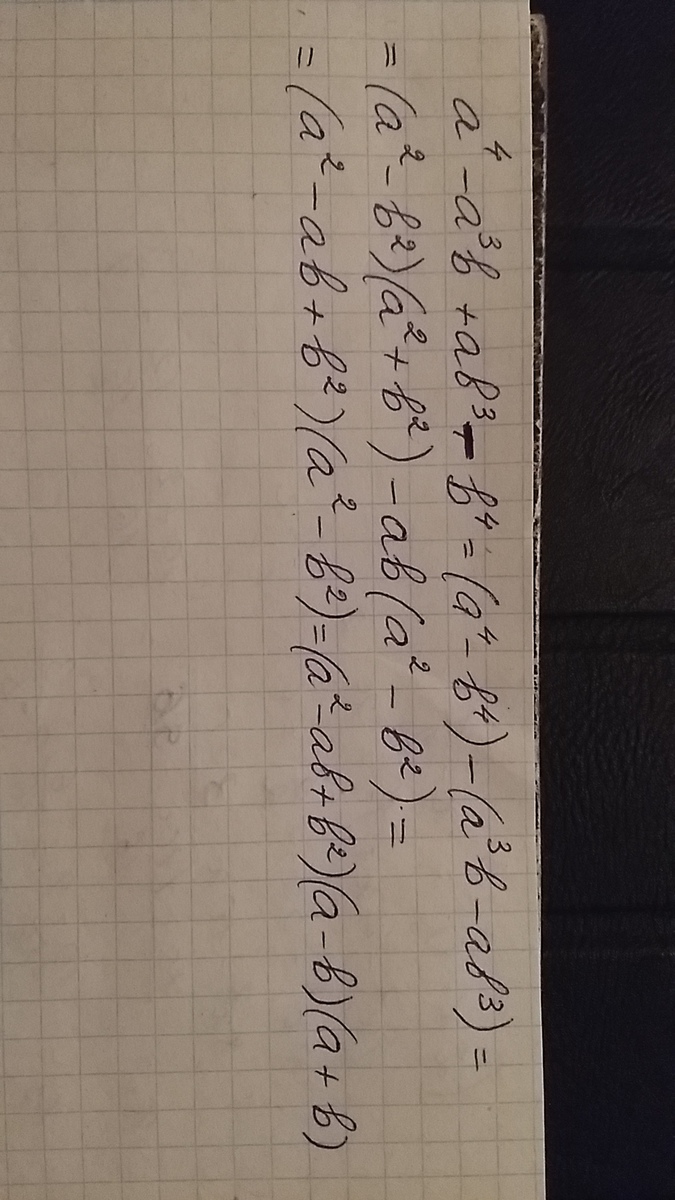 a⁴ - a³b + ab³ - b⁴ = (a⁴ - b⁴) - (a³b - ab³) =
= (a² - b²)(a² + b²) - ab(a² - b²) =
= (a² - ab + b²)(a² - b²) = (a² - ab + b²)(a - b)(a + b)